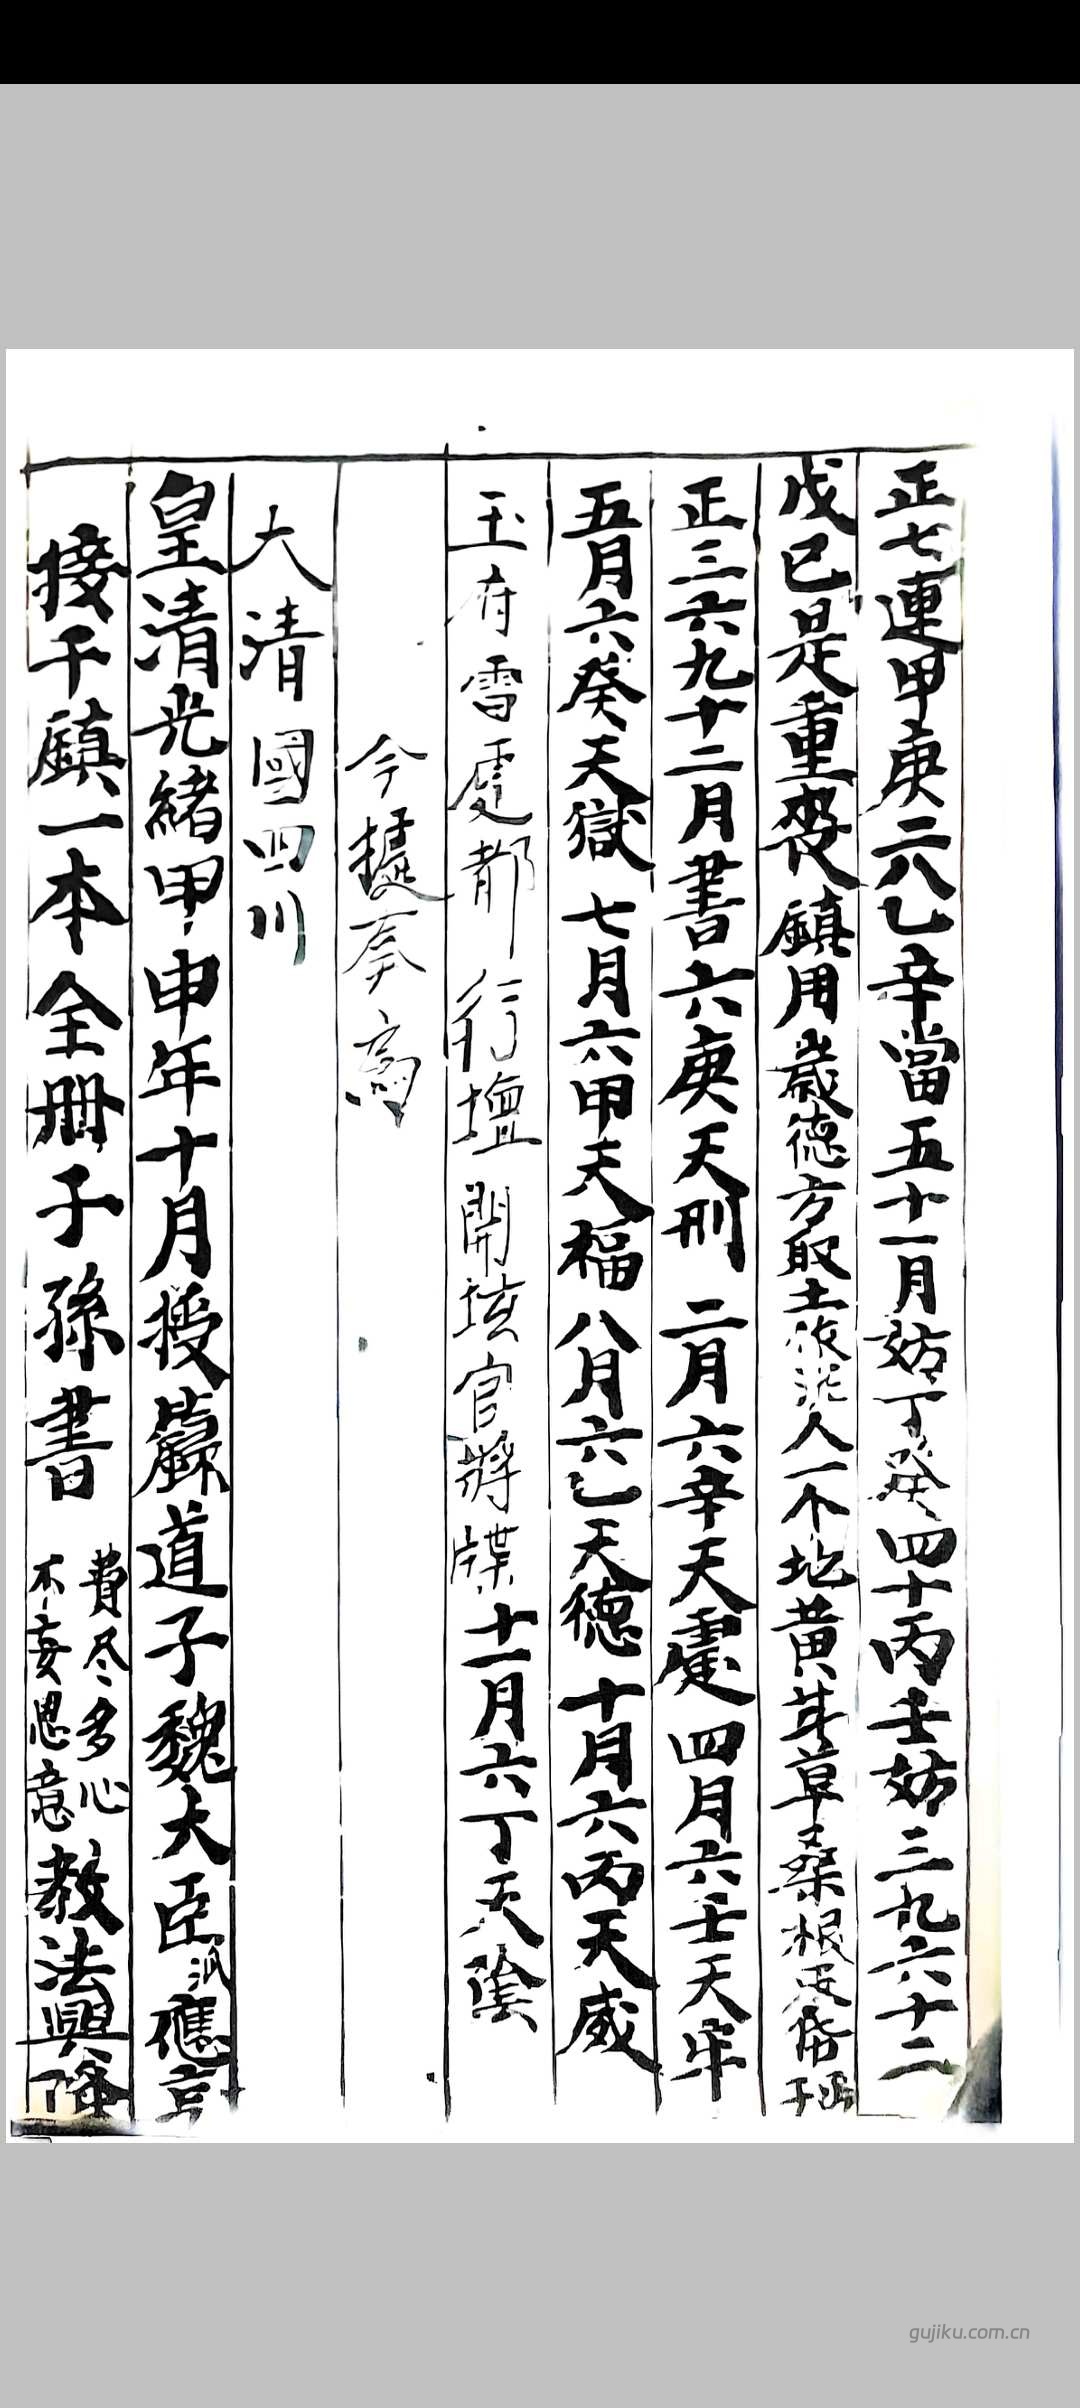 正七連甲庚二八乙辛當五十一月妨丁癸四十丙壬妨三九六十二
戊己是重喪鎮用歲德方取土依泥人一个圪黃茅草桑根皮俻
正三六九十二月書六庚天刑 二月六辛天霆 四月六壬天牢
五月六癸天獄 七月六甲天福 八月六乙天德 十月六丙天威
玉府雪霆都行壇 開垓官蔣牒十一月六丁天陰
今㨗奏 高
大清國四川
皇清光緒甲申年十月授籙道子魏大臣派應亨
接千鎮一本全冊子孫書 費尽多心 不妄思意 教法興隆
gujiku.com.cn